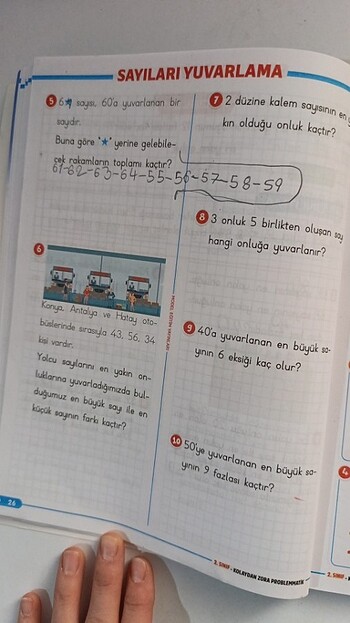 SAYILARI YUVARLAMA
5 6★ sayısı, 60'a yuvarlanan bir
sayıdır.
Buna göre "★" yerine gelebile-
cek rakamların toplamı kaçtır?
61-62-63-64-55-56-57-58-59
6
Konya, Antalya ve Hatay oto-
büslerinde sırasıyla 43, 56, 34
kişi vardır.
Yolcu sayılarını en yakın on-
luklarına yuvarladığımızda bul-
duğumuz en büyük sayı ile en
küçük sayının farkı kaçtır?
26
7 2 düzine kalem sayısının en y
kın olduğu onluk kaçtır?
8 3 onluk 5 birlikten oluşan say
hangi onluğa yuvarlanır?
9 40'a yuvarlanan en büyük sa-
yının 6 eksiği kaç olur?
10 50'ye yuvarlanan en büyük sa-
yının 9 fazlası kaçtır?
2. SINIF - KOLAYDAN ZORA PROBLEMMATİK
4
2. SINIF -